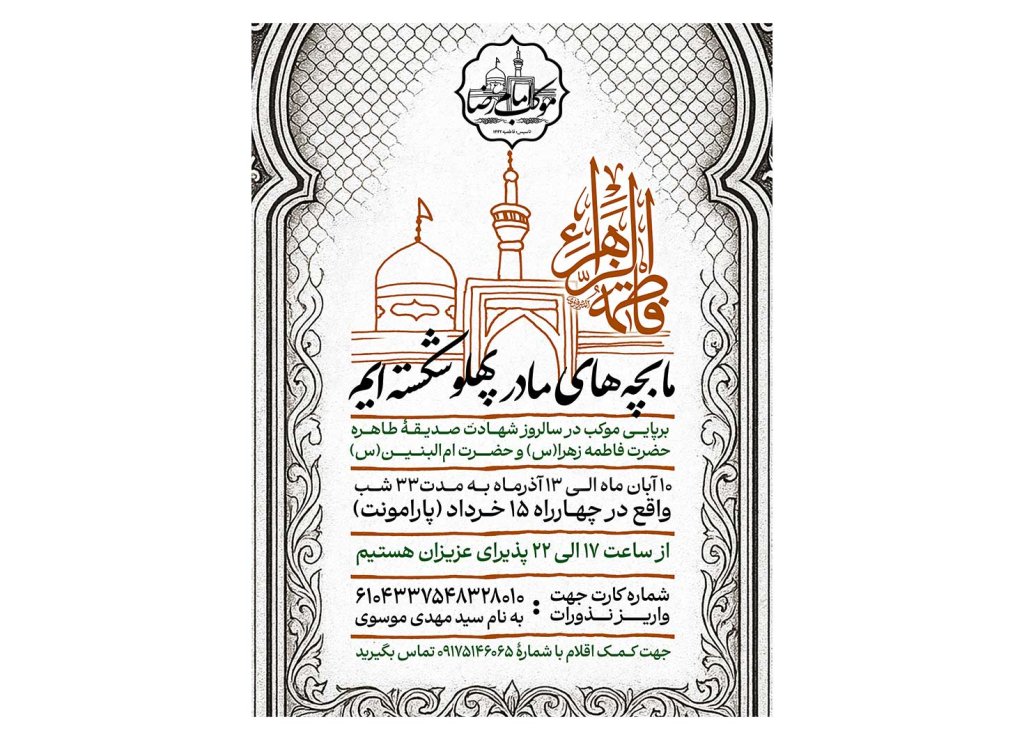 موکب امام رضا
تاسیس: فاطمیه ۱۴۴۲
فاطمة الزهراء
ما بچه های مادر پهلو شکسته ایم
برپایی موکب در سالروز شهادت صدیقۀ طاهره
حضرت فاطمه زهرا(س) و حضرت ام‌البنین(س)
۱۰ آبان ماه الی ۱۳ آذرماه به مدت ۳۳ شب
واقع در چهارراه ۱۵ خرداد (پارامونت)
از ساعت ۱۷ الی ۲۲ پذیرای عزیزان هستیم
شماره کارت جهت
واریز نذورات :
۶۱۰۴۳۳۷۵۴۸۳۲۸۰۱۰
به نام سید مهدی موسوی
جهت کمک اقلام با شمارۀ ۰۹۱۷۵۱۴۶۰۶۵ تماس بگیرید